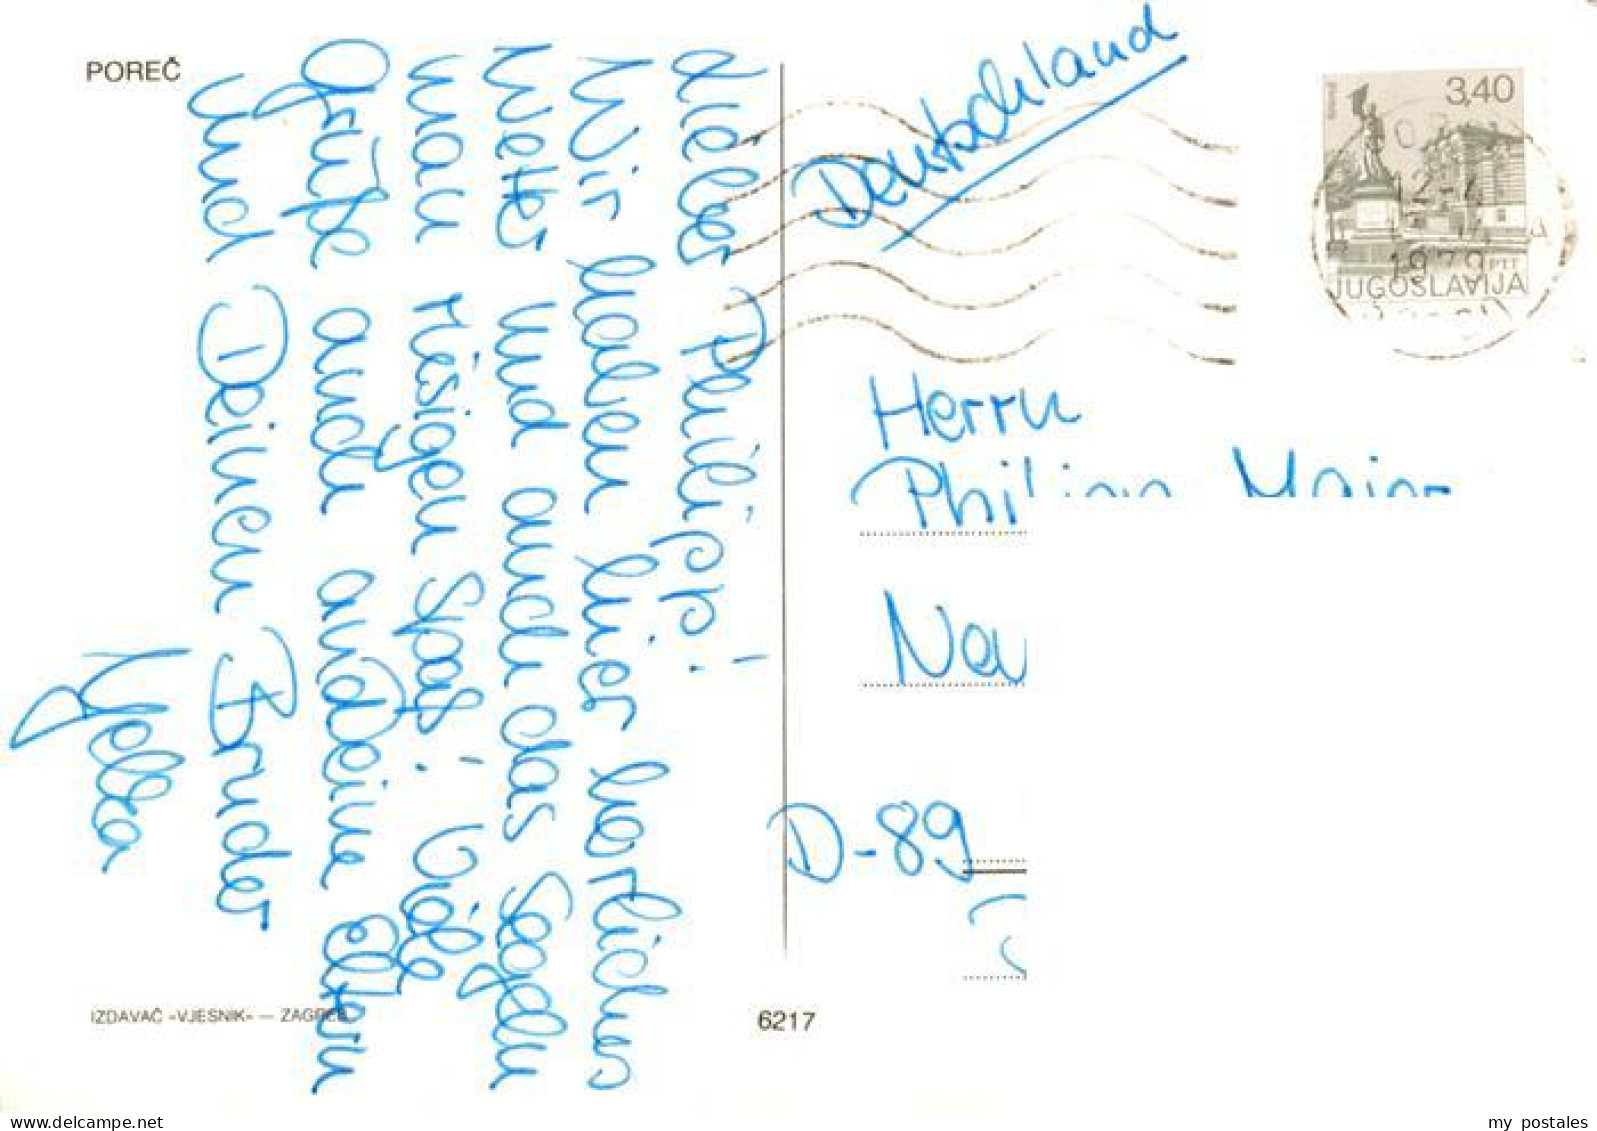 POREČ
Lieber Philipp!
Wir haben hier herrliches
Wetter und auch das Segeln
macht riesigen Spaß! Viele
Grüße auch an Deine Eltern
und Deinen Bruder
Deutschland
3,40
1979
PTT
JUGOSLAVIJA
Herrn
Philipp
D-89
IZDAVAČ «VJESNIK» — ZAGREB
6217
www.delcampe.net
my_postales